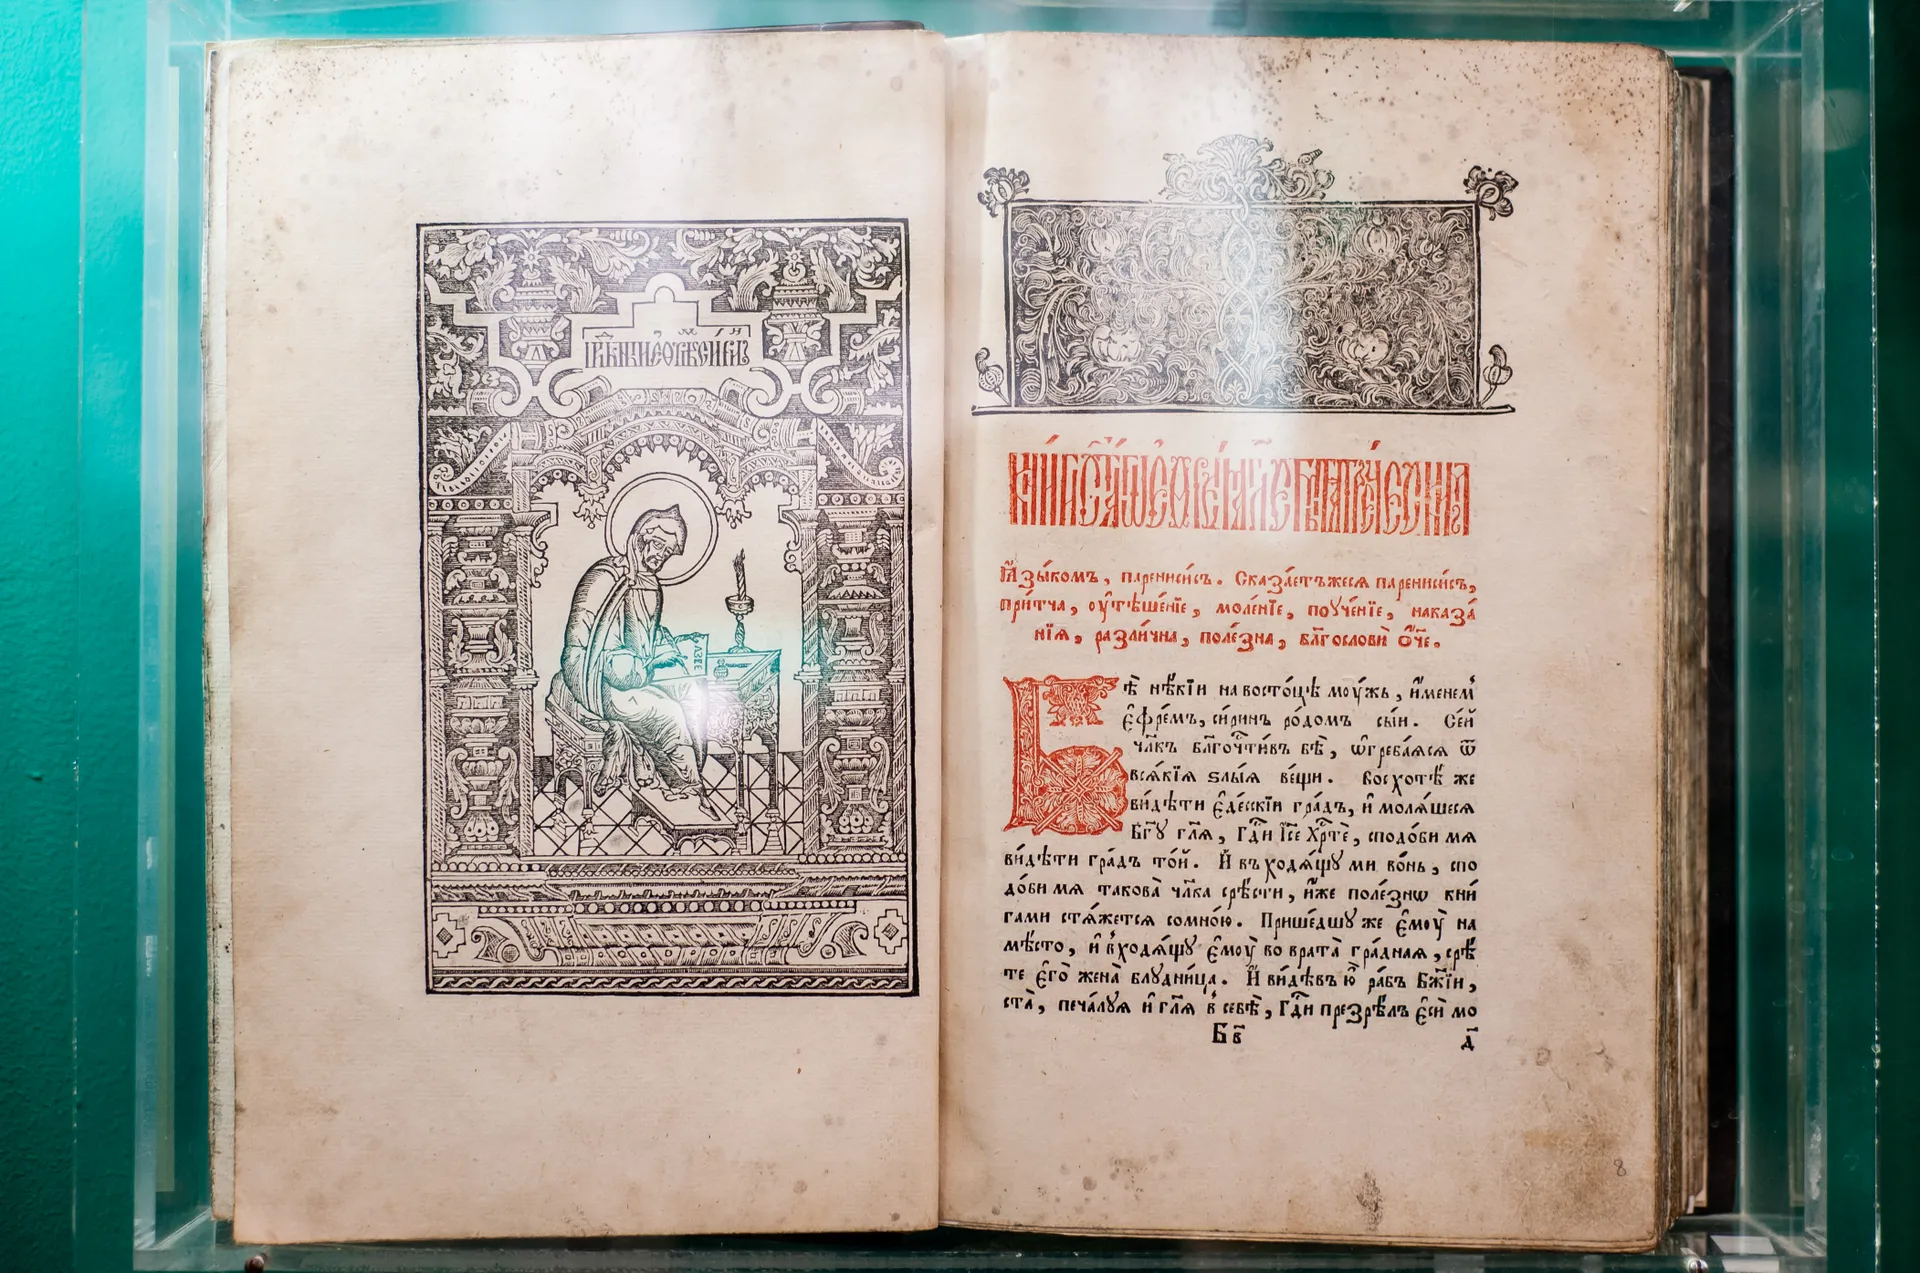 пр҃бныи ефре́мъ сиринъ
КНИ́ГА СТ҃А́ГѠ Е҆ФРЕ́МА ГЛ҃Е́МАѦ ГРЕ́ЧЕСКИМЪ
ꙗ҆зы́комъ, парени́сисъ. Сказа́етъжесѧ парени́сисъ,
при́тча, оу҆тѣше́нїе, моле́нїе, поуче́нїе, наказа́
нїѧ, разли́чна, поле́зна, бл҃гословѝ ѻ҆́ч҃е.
Бѣ̀ нѣ́кїи навосто́цѣ моу́жъ, и҆́менемъ
є҆фре́мъ, си́ринъ ро́домъ сы́и. Се́й
чл҃къ бл҃гочⷭ҇ти́въ бѣ̀, ѡ҆греба́ѧсѧ ѿ
всѧ́кїѧ ѕлы́ѧ ве́щи. Восхотѣ́ же
ви́дѣти є҆де́сскїи гра́дъ, и҆ молѧ́шесѧ
бг҃ꙋ гл҃ѧ, гдⷭ҇и і҆с҃е хрⷭ҇тѐ, сподо́би мѧ
ви́дѣти гра́дъ то́й. И҆ въходѧ́щꙋ ми во́нь, спо
до́би мѧ такова̀ чл҃ка срѣ́сти, и҆́же поле́знѡ кни́
гами стѧ́жетсѧ сомно́ю. Прише́дшꙋ же є҆моу̀ на
мѣ́сто, и҆ входѧ́щꙋ є҆моу̀ во врата̀ гра́днаѧ, срѣ́
те є҆го̀ жена̀ блудни́ца. И҆ ви́дѣвъ ю҆̀ ра́бъ бж҃їи,
ста̀, печа́луѧ и҆ гл҃ѧ в себѣ̀, гдⷭ҇и презрѣ́лъ є҆сѝ мо
Б в҃
д҃
8